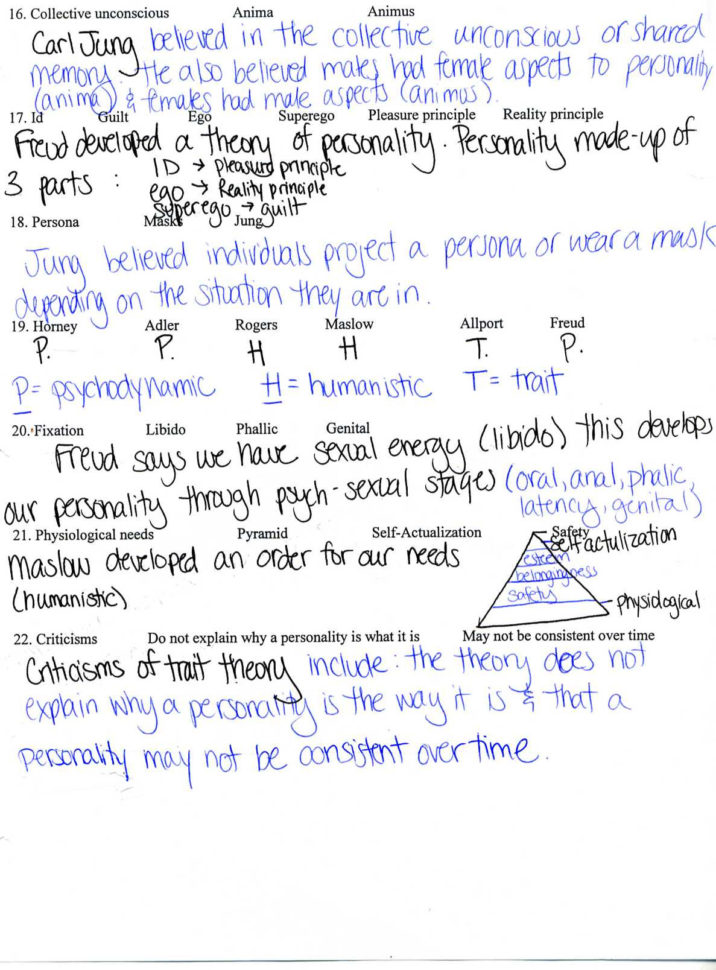 16. Collective unconscious Anima Animus
Carl Jung believed in the collective unconscious or shared
memory. He also believed males had female aspects to personality
(anima) & females had male aspects (animus).
17. Id Guilt Ego Superego Pleasure principle Reality principle
Freud developed a theory of personality. Personality made-up of
3 parts : ID → pleasure principle
ego → Reality principle
superego → guilt
18. Persona Masks Jung
Jung believed individuals project a persona or wear a mask
depending on the situation they are in.
19. Horney Adler Rogers Maslow Allport Freud
P. P. H H T. P.
P = psychodynamic H = humanistic T = trait
20. Fixation Libido Phallic Genital
Freud says we have sexual energy (libido) this develops
our personality through psych-sexual stages (oral, anal, phalic,
latency, genital)
21. Physiological needs Pyramid Self-Actualization Safety
Maslow developed an order for our needs
(humanistic)
self actulization
esteem
belongingness
safety
physiological
22. Criticisms Do not explain why a personality is what it is May not be consistent over time
Criticisms of trait theory include: the theory does not
explain why a personality is the way it is & that a
personality may not be consistent over time.